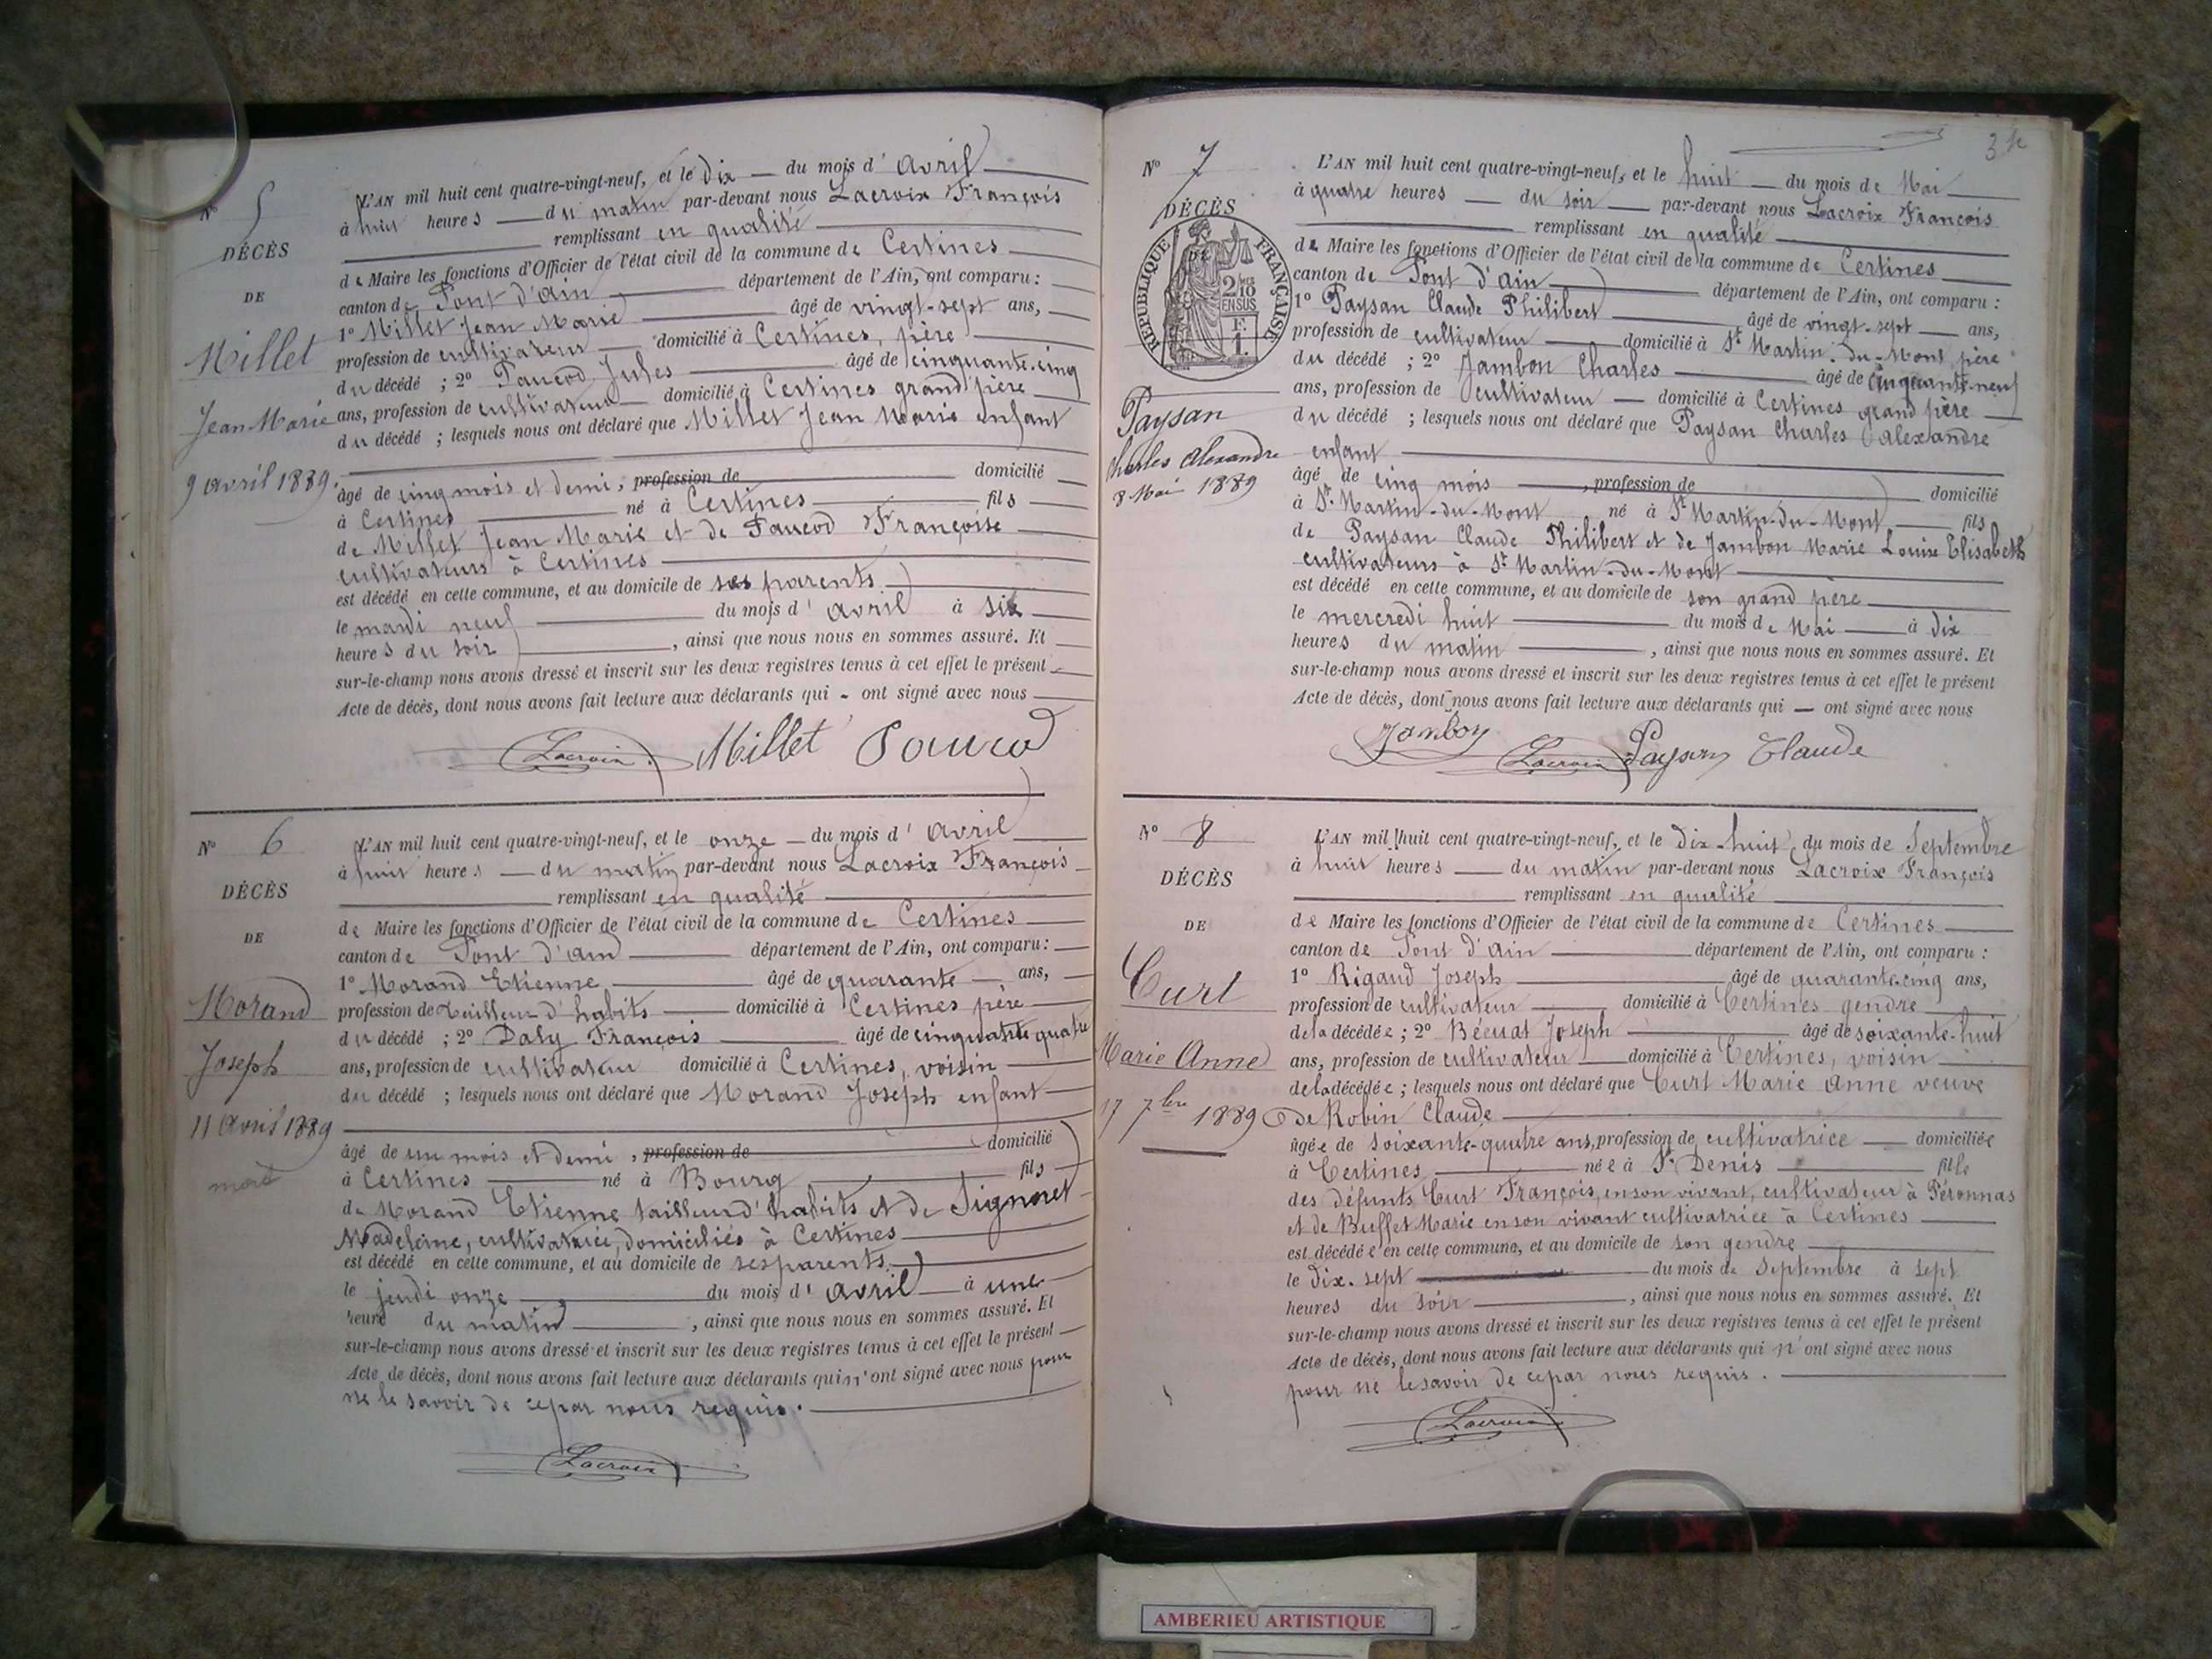 Nº 5
DÉCÈS
DE
Millet
Jean Marie
9 avril 1889.
L'AN mil huit cent quatre-vingt-neuf, et le dix — du mois d' avril
à huit heures — du matin par-devant nous Lacroix François
remplissant en qualité
de Maire les fonctions d'Officier de l'état civil de la commune de Certines
canton de Pont d'Ain département de l'Ain, ont comparu :
1º Millet Jean Marie âgé de vingt-sept ans,
profession de cultivateur domicilié à Certines, père
du décédé ; 2º Paucod Jules âgé de cinquante-cinq
ans, profession de cultivateur domicilié à Certines grand père
du décédé ; lesquels nous ont déclaré que Millet Jean Marie enfant
âgé de cinq mois et demi, profession de domicilié
à Certines né à Certines fils
de Millet Jean Marie et de Paucod Françoise
cultivateurs à Certines
est décédé en cette commune, et au domicile de ses parents
le mardi neuf du mois d' avril à six
heures du soir , ainsi que nous nous en sommes assuré. Et
sur-le-champ nous avons dressé et inscrit sur les deux registres tenus à cet effet le présent
Acte de décès, dont nous avons fait lecture aux déclarants qui - ont signé avec nous
Lacroix Millet Paucod
Nº 6
DÉCÈS
DE
Morand
Joseph
11 Avril 1889
L'AN mil huit cent quatre-vingt-neuf, et le onze — du mois d' avril
à huit heures — du matin par-devant nous Lacroix François
remplissant en qualité
de Maire les fonctions d'Officier de l'état civil de la commune de Certines
canton de Pont d'Ain département de l'Ain, ont comparu :
1º Morand Etienne âgé de quarante ans,
profession de tailleur d'habits domicilié à Certines père
du décédé ; 2º Daly François âgé de cinquante quatre
ans, profession de cultivateur domicilié à Certines, voisin
du décédé ; lesquels nous ont déclaré que Morand Joseph enfant
âgé de un mois et demi, profession de domicilié
à Certines né à Bourg fils
de Morand Etienne tailleur d'habits et de Signoret
Madeleine, cultivatrice, domiciliés à Certines
est décédé en cette commune, et au domicile de ses parents
le jeudi onze du mois d' avril à une
heure du matin , ainsi que nous nous en sommes assuré. Et
sur-le-champ nous avons dressé et inscrit sur les deux registres tenus à cet effet le présent
Acte de décès, dont nous avons fait lecture aux déclarants qui n'ont signé avec nous pour
ne le savoir de ce par nous requis.
Lacroix
Nº 7
DÉCÈS
RÉPUBLIQUE FRANÇAISE
2/10
EN SUS
Paysan
Charles Alexandre
8 Mai 1889
L'AN mil huit cent quatre-vingt-neuf, et le huit — du mois de Mai
à quatre heures — du soir — par-devant nous Lacroix François
remplissant en qualité
de Maire les fonctions d'Officier de l'état civil de la commune de Certines
canton de Pont d'Ain département de l'Ain, ont comparu :
1º Paysan Claude Philibert âgé de vingt-sept ans,
profession de cultivateur domicilié à St Martin-du-Mont, père
du décédé ; 2º Jambon Charles âgé de cinquante-neuf
ans, profession de cultivateur — domicilié à Certines grand père
du décédé ; lesquels nous ont déclaré que Paysan Charles Alexandre
enfant
âgé de cinq mois , profession de domicilié
à St Martin-du-Mont né à St Martin-du-Mont fils
de Paysan Claude Philibert et de Jambon Marie Louise Elisabeth
cultivateurs à St Martin-du-Mont
est décédé en cette commune, et au domicile de son grand père
le mercredi huit du mois de Mai à dix
heures du matin , ainsi que nous nous en sommes assuré. Et
sur-le-champ nous avons dressé et inscrit sur les deux registres tenus à cet effet le présent
Acte de décès, dont nous avons fait lecture aux déclarants qui — ont signé avec nous
Jambon Lacroix Paysan Claude
Nº 8
DÉCÈS
DE
Curt
Marie Anne
17 7bre 1889
L'AN mil huit cent quatre-vingt-neuf, et le dix-huit du mois de Septembre
à huit heures — du matin par-devant nous Lacroix François
remplissant en qualité
de Maire les fonctions d'Officier de l'état civil de la commune de Certines
canton de Pont d'Ain département de l'Ain, ont comparu :
1º Rigaud Joseph âgé de quarante-cinq ans,
profession de cultivateur domicilié à Certines gendre
de la décédée ; 2º Bécuat Joseph âgé de soixante-huit
ans, profession de cultivateur domicilié à Certines, voisin
de la décédée ; lesquels nous ont déclaré que Curt Marie Anne veuve
de Robin Claude
âgée de soixante-quatre ans, profession de cultivatrice — domiciliée
à Certines née à St Denis fille
des défunts Curt François, en son vivant, cultivateur à Péronnas
et de Buffet Marie en son vivant cultivatrice à Certines
est décédée en cette commune, et au domicile de son gendre
le dix-sept du mois de Septembre à sept
heures du soir , ainsi que nous nous en sommes assuré. Et
sur-le-champ nous avons dressé et inscrit sur les deux registres tenus à cet effet le présent
Acte de décès, dont nous avons fait lecture aux déclarants qui n'ont signé avec nous
pour ne le savoir de ce par nous requis.
Lacroix
AMBERIEU ARTISTIQUE